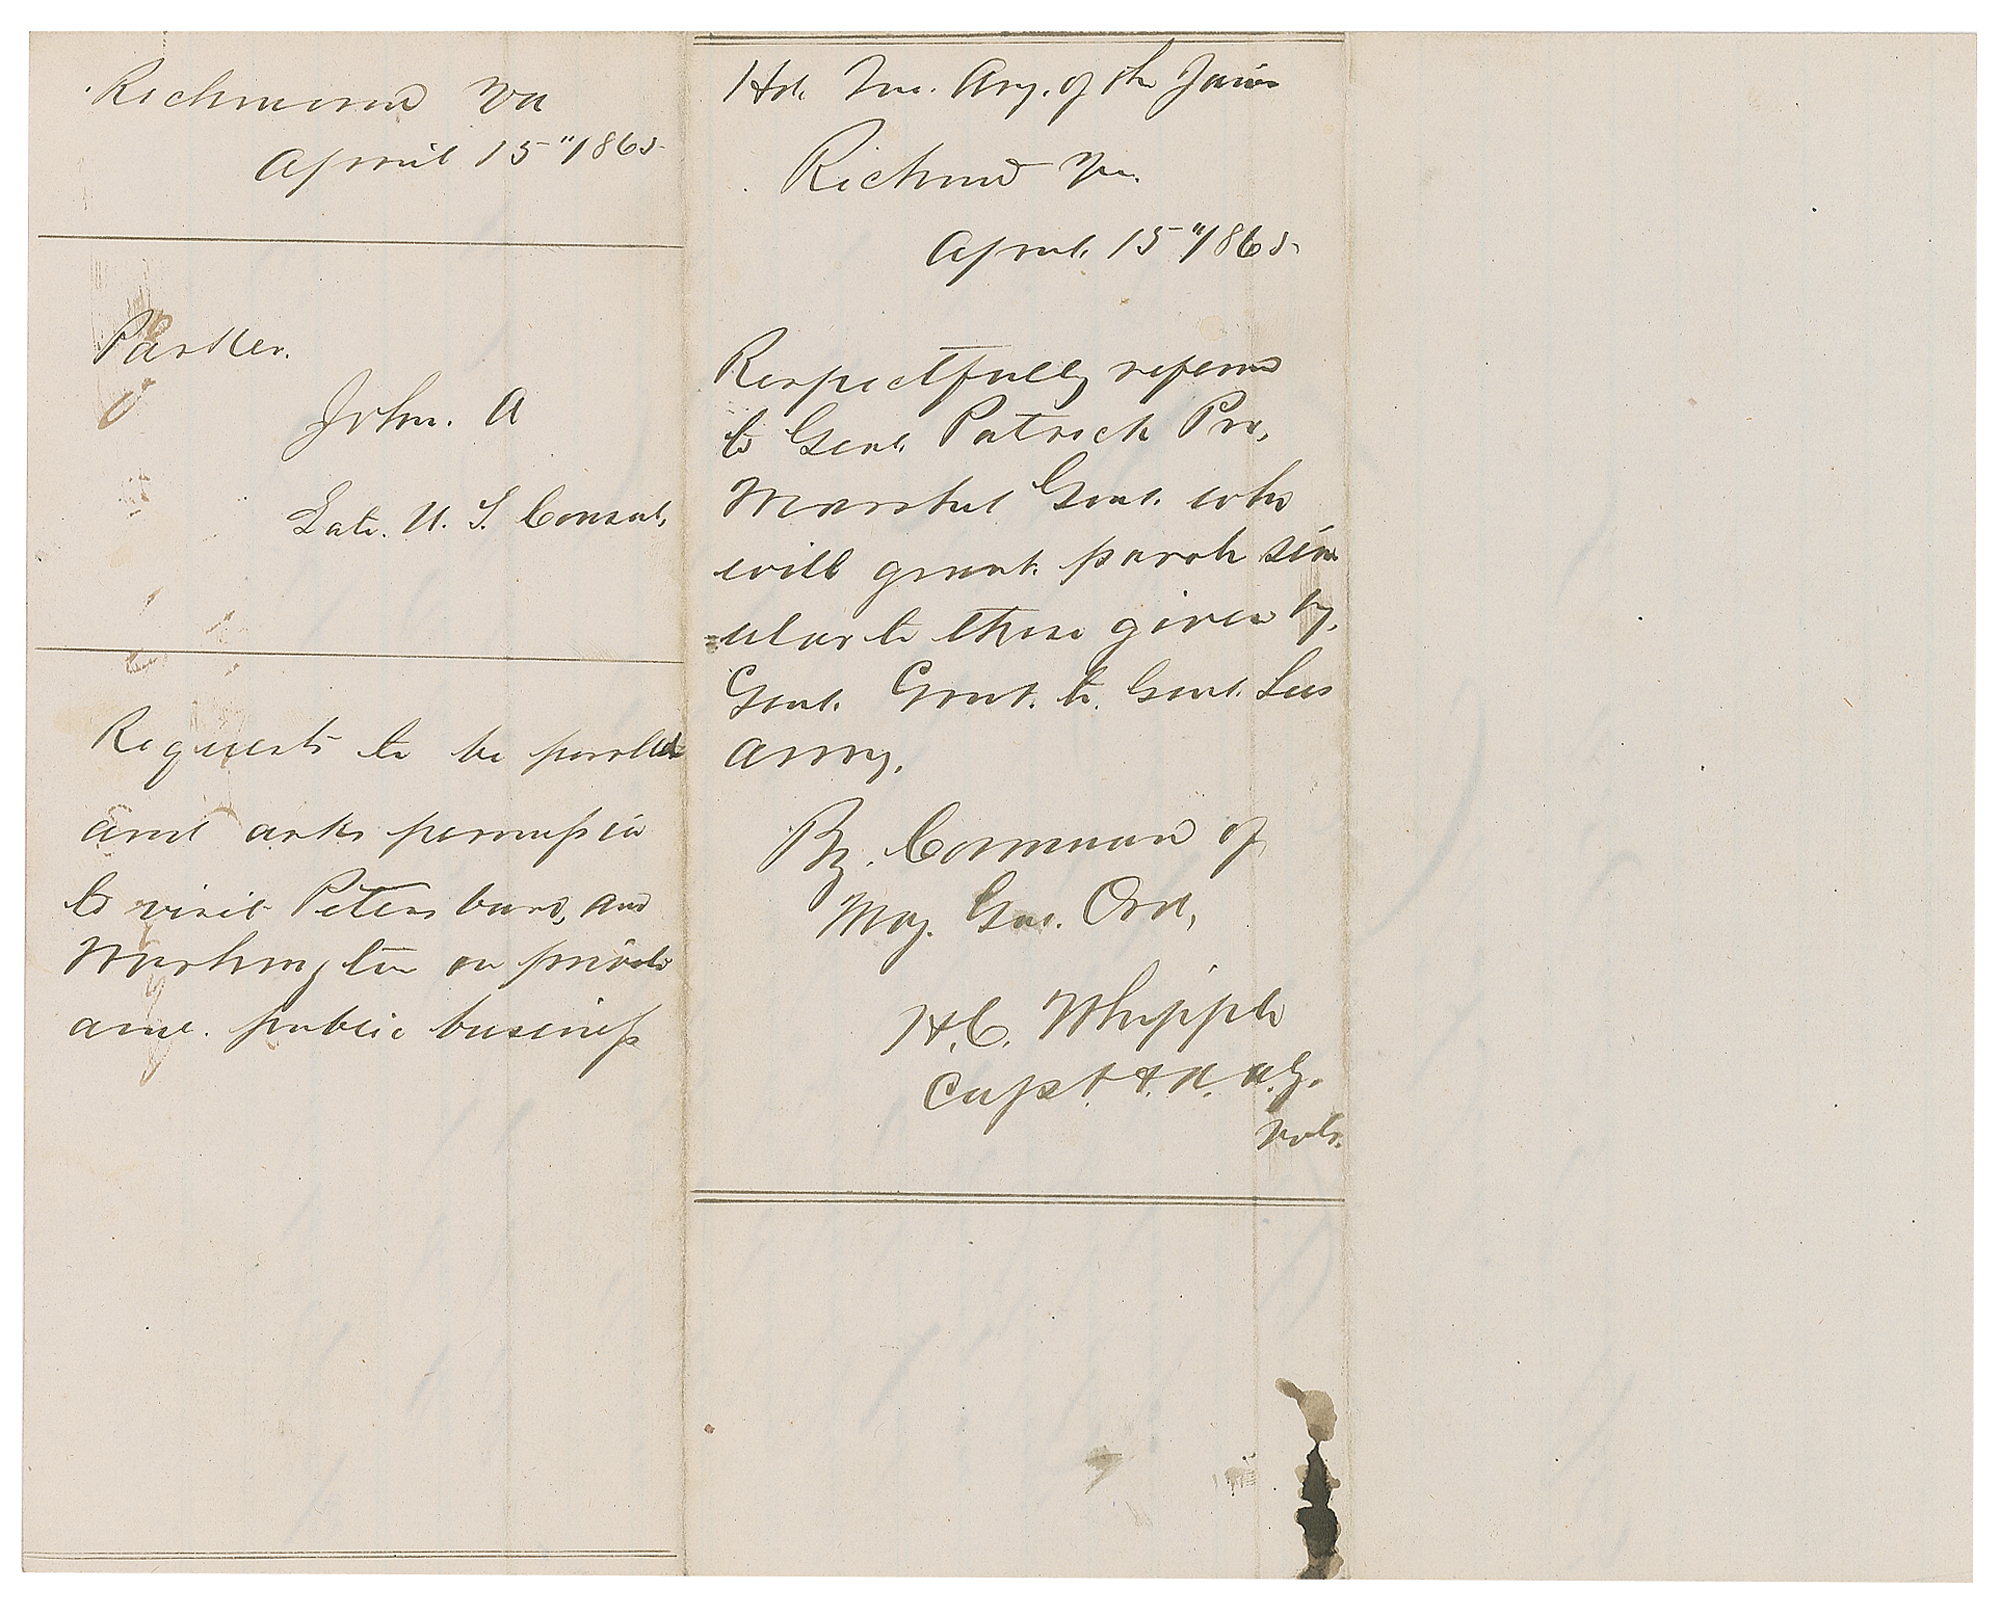 Richmond Va
April 15" 1865
Parker.
John. A
Late. U. S. Consul,
Requests to be parolled
and asks permission
to visit Petersburg, and
Washington on private
and. public business
Hd. Qrs. Army. of the James
Richmd Va.
April. 15" 1865
Respectfully referred
to Genl. Patrick Pro,
Marshal Genl. who
will grant. parole sim
-ular to those given by,
Genl. Grant. to. Genl. Lees
army.
By. Command of
Maj. Gen. Ord,
H. C. Whipple
Capt. & A. A. G.
Vols.